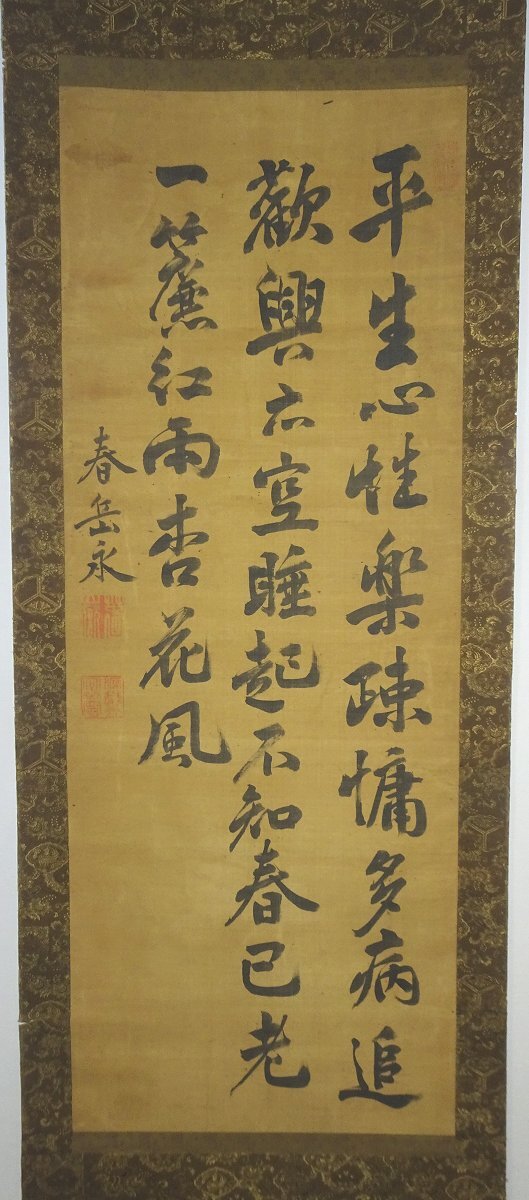 平生心性楽疎慵多病追
歡興亦空睡起不知春已老
一簾紅雨杏花風
春岳永